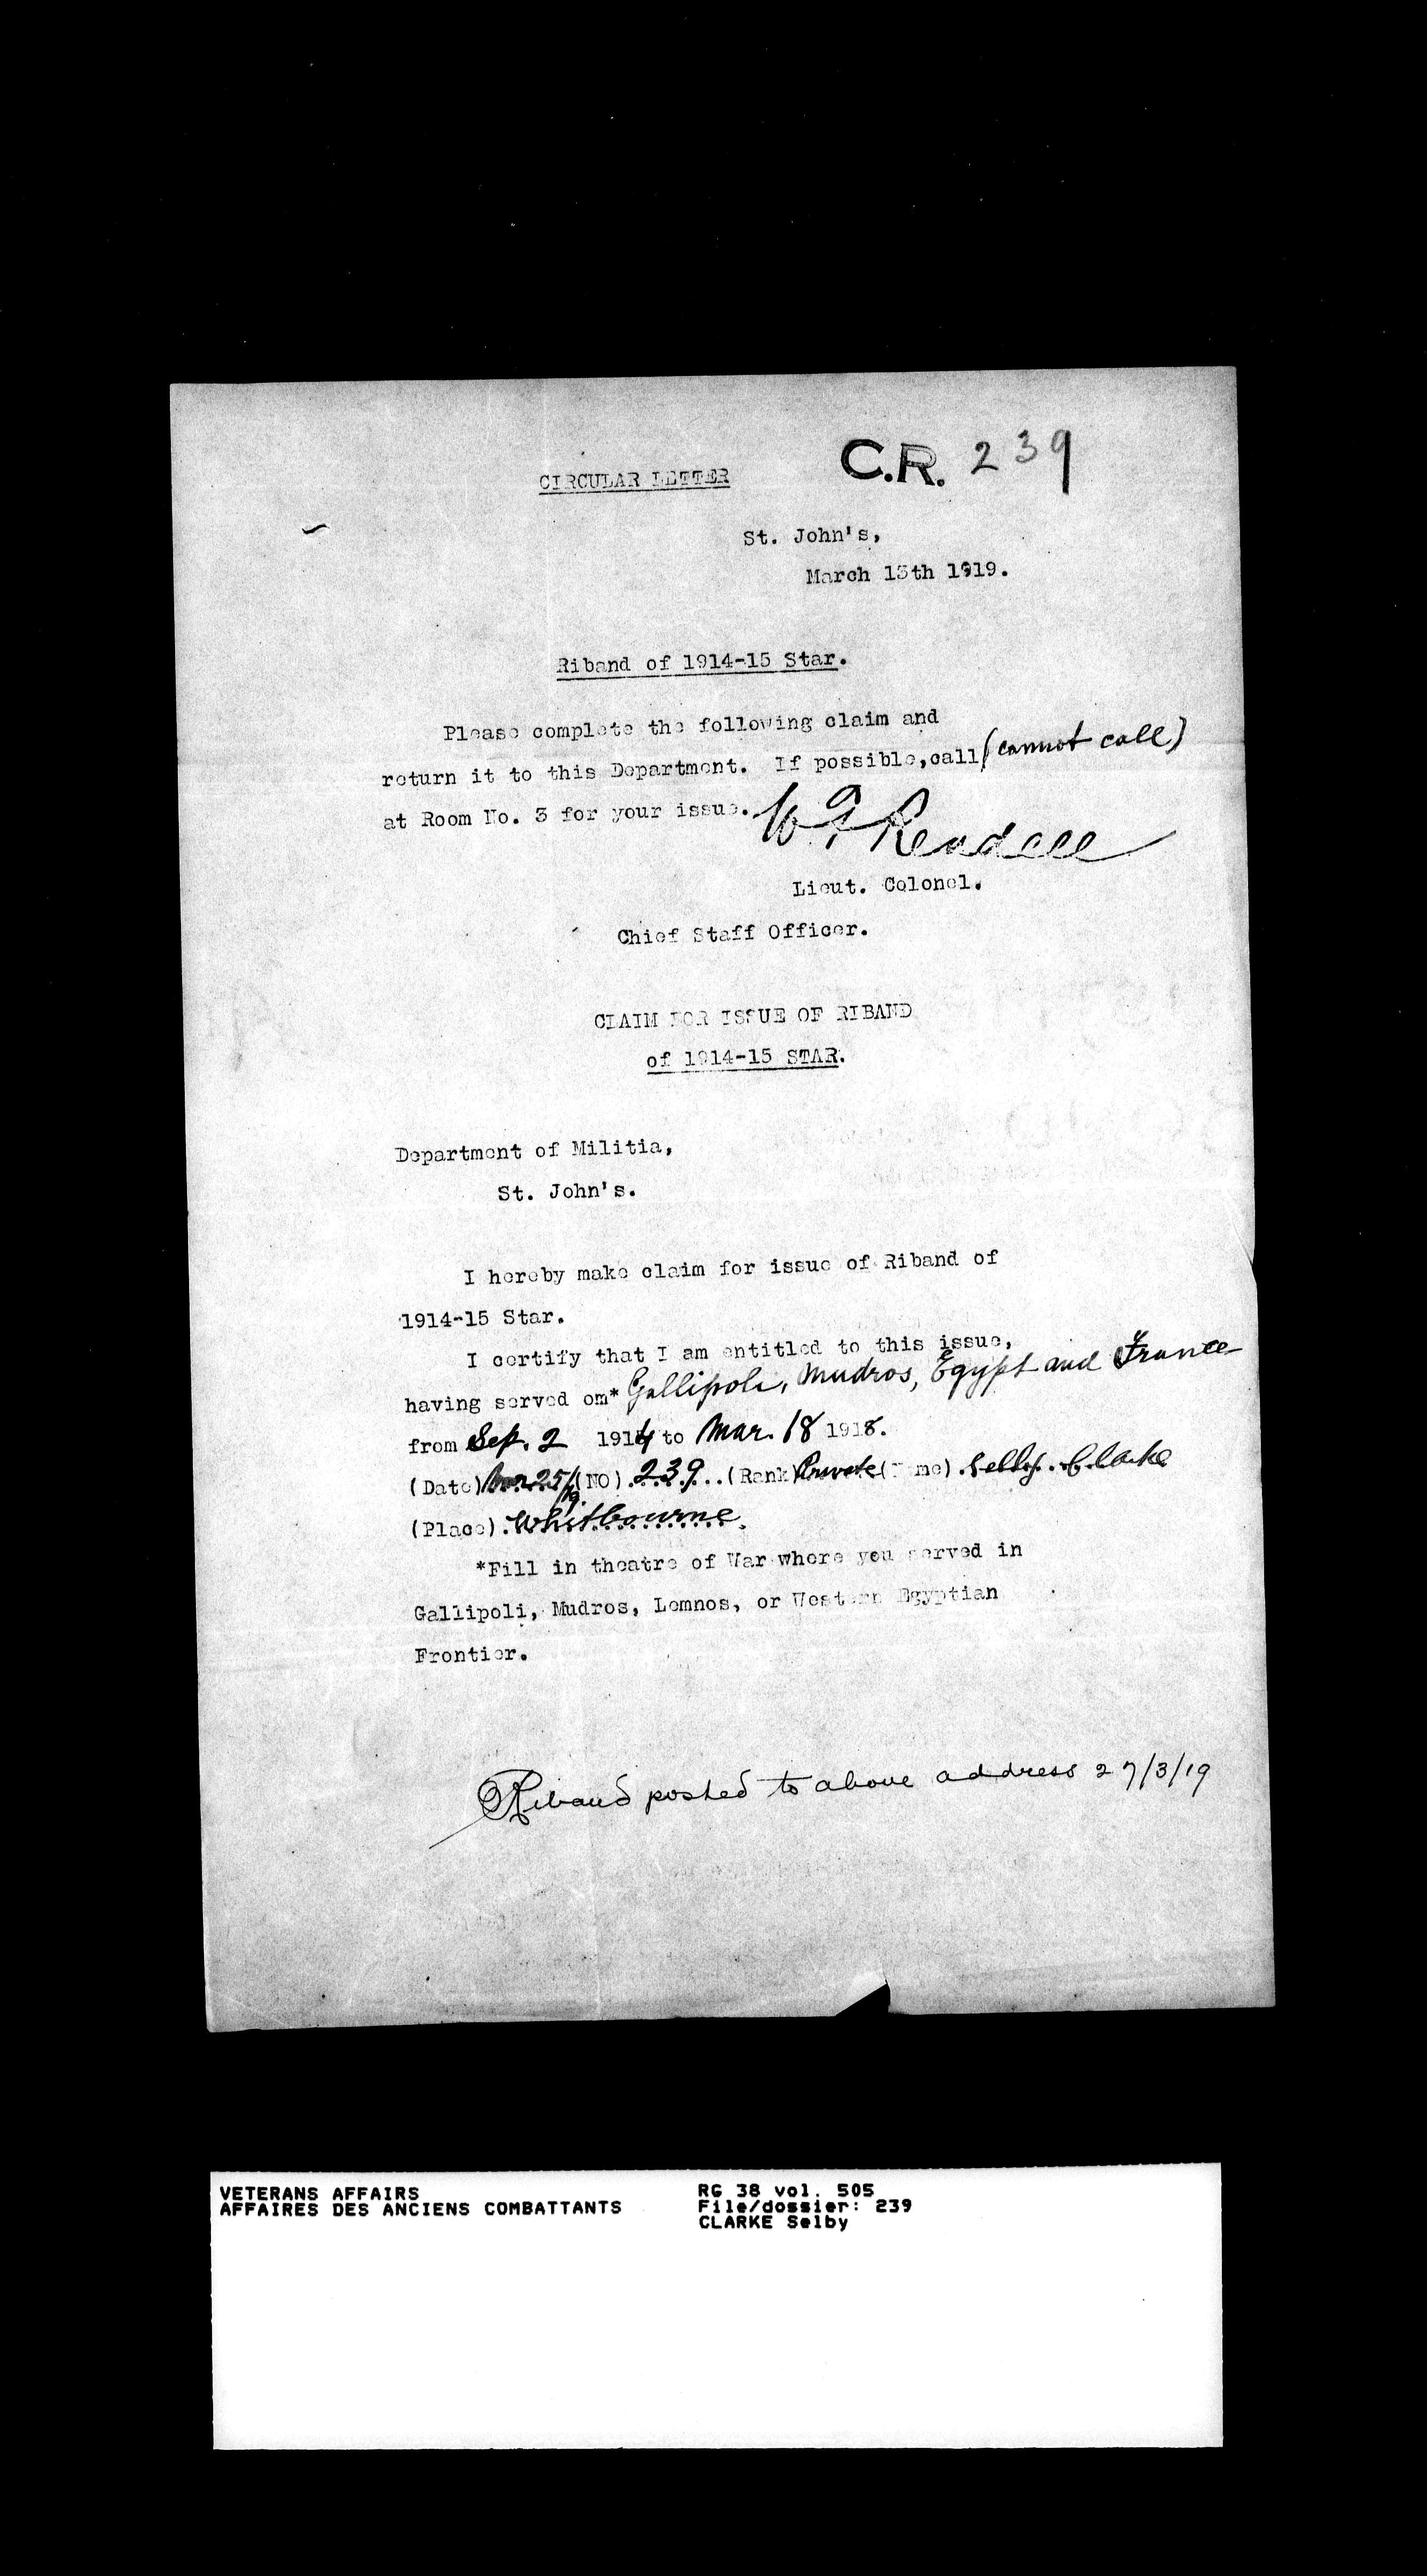 CIRCULAR LETTER
C.R. 239
St. John's,
March 13th 1919.
Riband of 1914-15 Star.
Please complete the following claim and
return it to this Department. If possible, call (cannot call)
at Room No. 3 for your issue.
W F Rendell
Lieut. Colonel.
Chief Staff Officer.
CLAIM FOR ISSUE OF RIBAND
of 1914-15 STAR.
Department of Militia,
St. John's.
I hereby make claim for issue of Riband of
1914-15 Star.
I certify that I am entitled to this issue,
having served om* Gallipoli, Mudros, Egypt and France
from Sep. 2 1914 to Mar. 18 1918.
(Date) Mar 25/19 (NO) 239 (Rank) Private (Name) Selby Clarke
(Place) Whitbourne.
*Fill in theatre of War where you served in
Gallipoli, Mudros, Lemnos, or Western Egyptian
Frontier.
Riband posted to above address 27/3/19
VETERANS AFFAIRS
AFFAIRES DES ANCIENS COMBATTANTS
RG 38 vol. 505
File/dossier: 239
CLARKE Selby